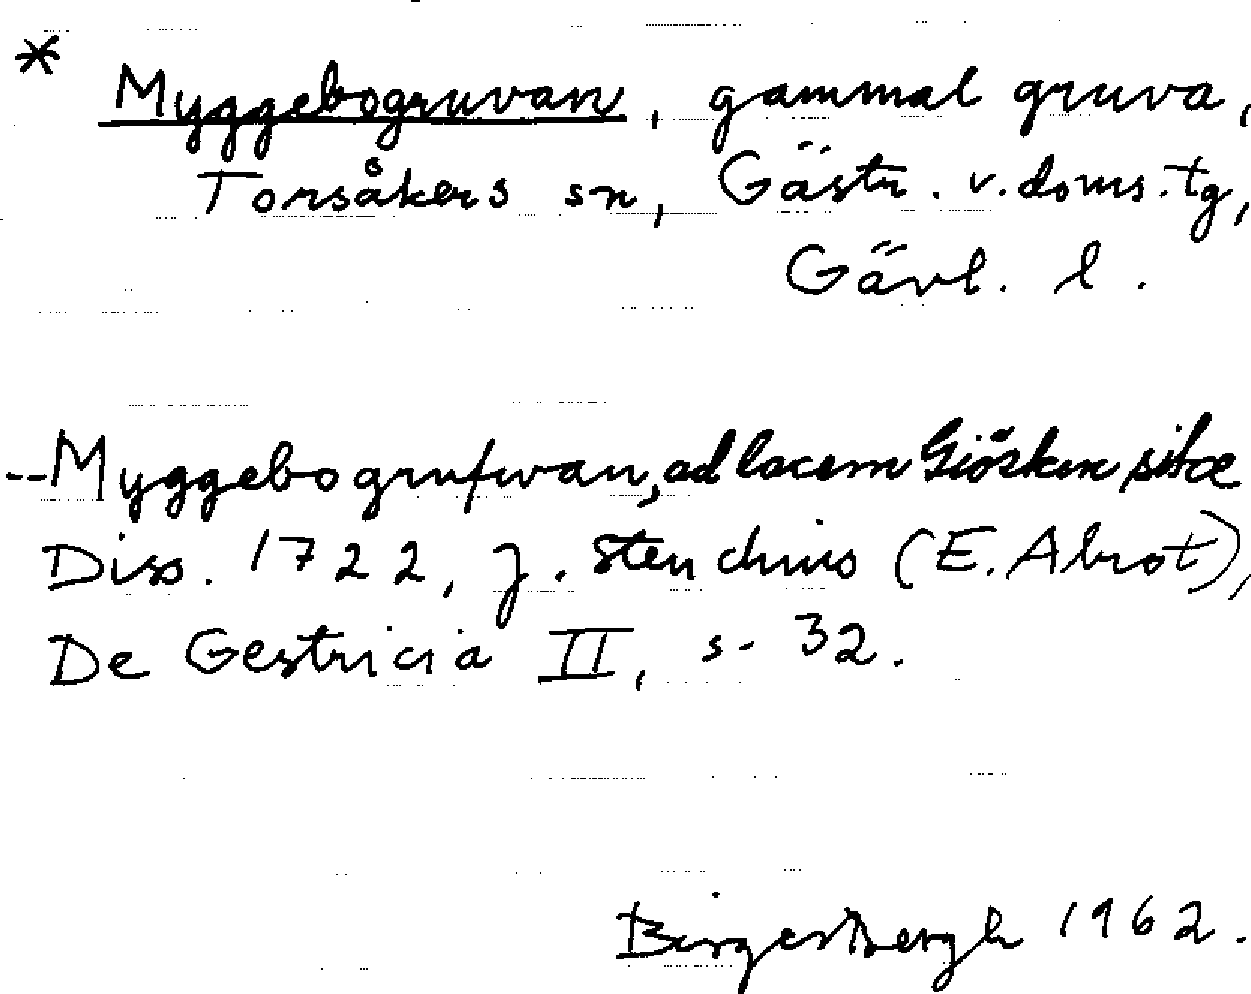 * Myggebogruvan, gammal gruva,
Torsåkers sn, Gästr. v. doms. tg,
Gävl. l.
--Myggebogrufwan, ad lacem Giösken sitæ
Diss. 1722, J. Stenchius (E. Abrot),
De Gestricia II, s. 32.
Birger Bergh 1962.